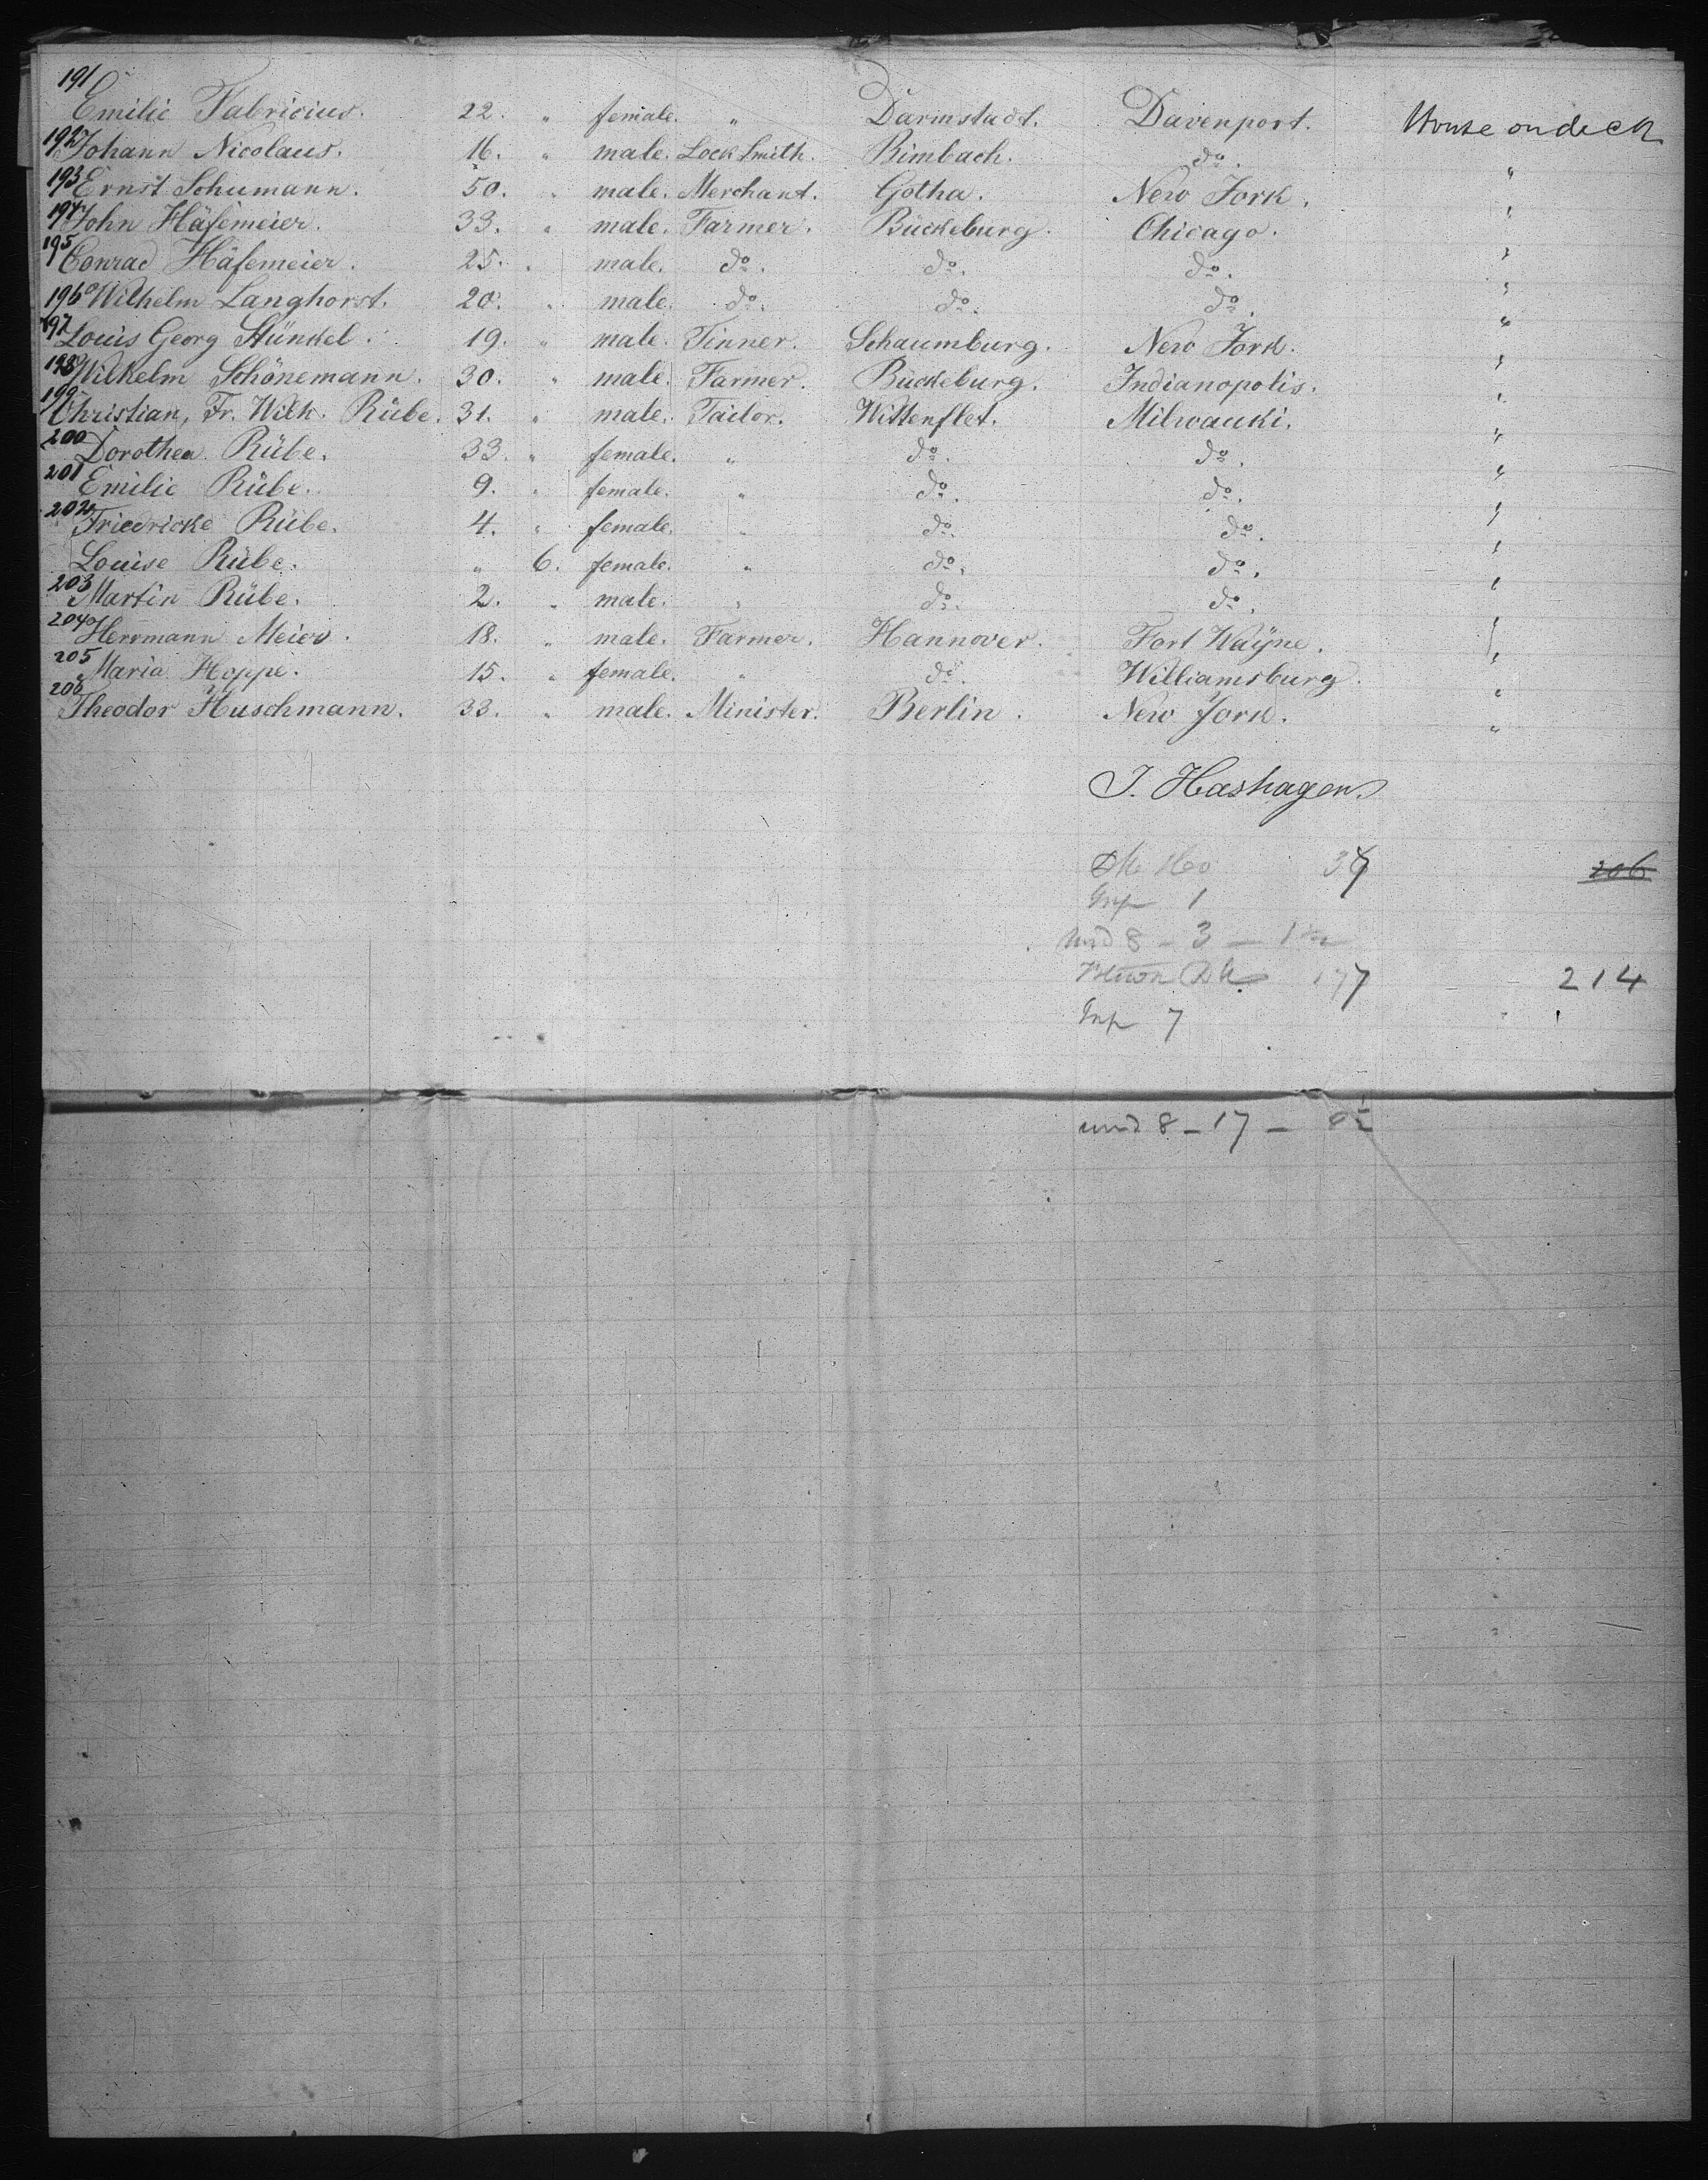 191 Emilie Fabricius. 22. " female. " Darmstadt. Davenport. House on deck
192 Johann Nicolaus. 16. " male. Lock Smith. Bimbach. do. "
193 Ernst Schumann. 50. " male. Merchant. Gotha. New York. "
194 John Häfemeier. 33. " male. Farmer. Bückeburg. Chicago. "
195 Conrad Häfemeier. 25. " male. do. do. do. "
196 Wilhelm Langhorst. 20. " male. do. do. do. "
197 Louis Georg Stünkel. 19. " male. Tinner. Schaumburg. New York. "
198 Wilhelm Schönemann. 30. " male. Farmer. Bückeburg. Indianopolis. "
199 Christian, Fr. Wilh. Rübe. 31. " male. Tailor. Wittenflet. Milwauki. "
200 Dorothea Rübe. 33. " female. " do. do. "
201 Emilie Rübe. 9. " female. " do. do. "
202 Friedricke Rübe. 4. " female. " do. do. "
Louise Rübe. " 6. female. " do. do. "
203 Martin Rübe. 2. " male. " do. do. "
204 Herrmann Meier. 18. " male. Farmer. Hannover. Fort Wayne. "
205 Maria Hoppe. 15. " female. " do. Williamsburg. "
206 Theodor Huschmann. 33. " male. Minister. Berlin. New York. "
J. Hashagen.
206
Inf 1
und 8 - 3 - 1½
177 214
Inf 7
und 8 - 17 - 8½